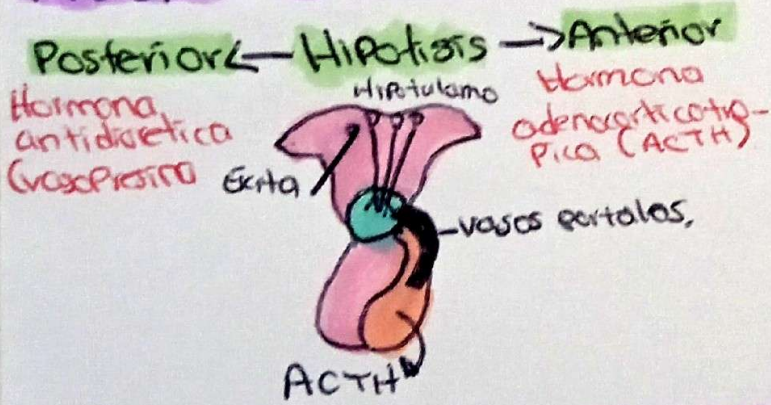 Posterior ← Hipofisis → Anterior
Hipotalamo
Hormona
antidiuretica
(vasopresina
Hormona
adenocorticotro-
pica (ACTH)
Exita
vasos portales,
ACTH